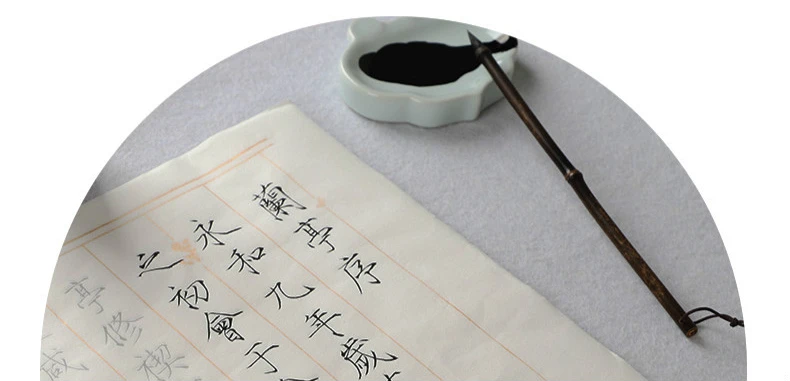 蘭亭序
永和九年歲
之初會于
亭修禊
咸